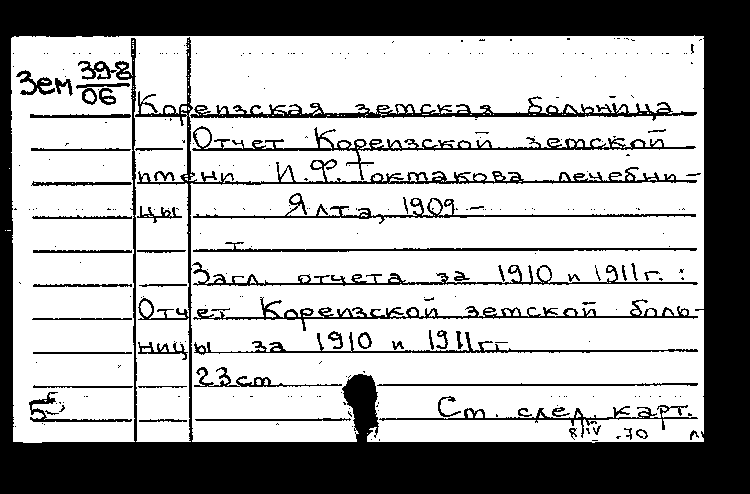 Зем 39-8
06
Кореизская земская больница.
Отчет Кореизской земской
имени И.Ф.Токмакова лечебни-
цы ... Ялта, 1909 -
т.
Загл. отчета за 1910 и 1911г.:
Отчет Кореизской земской боль-
ницы за 1910 и 1911гг.
23см.
См. след. карт.
8/IV .70